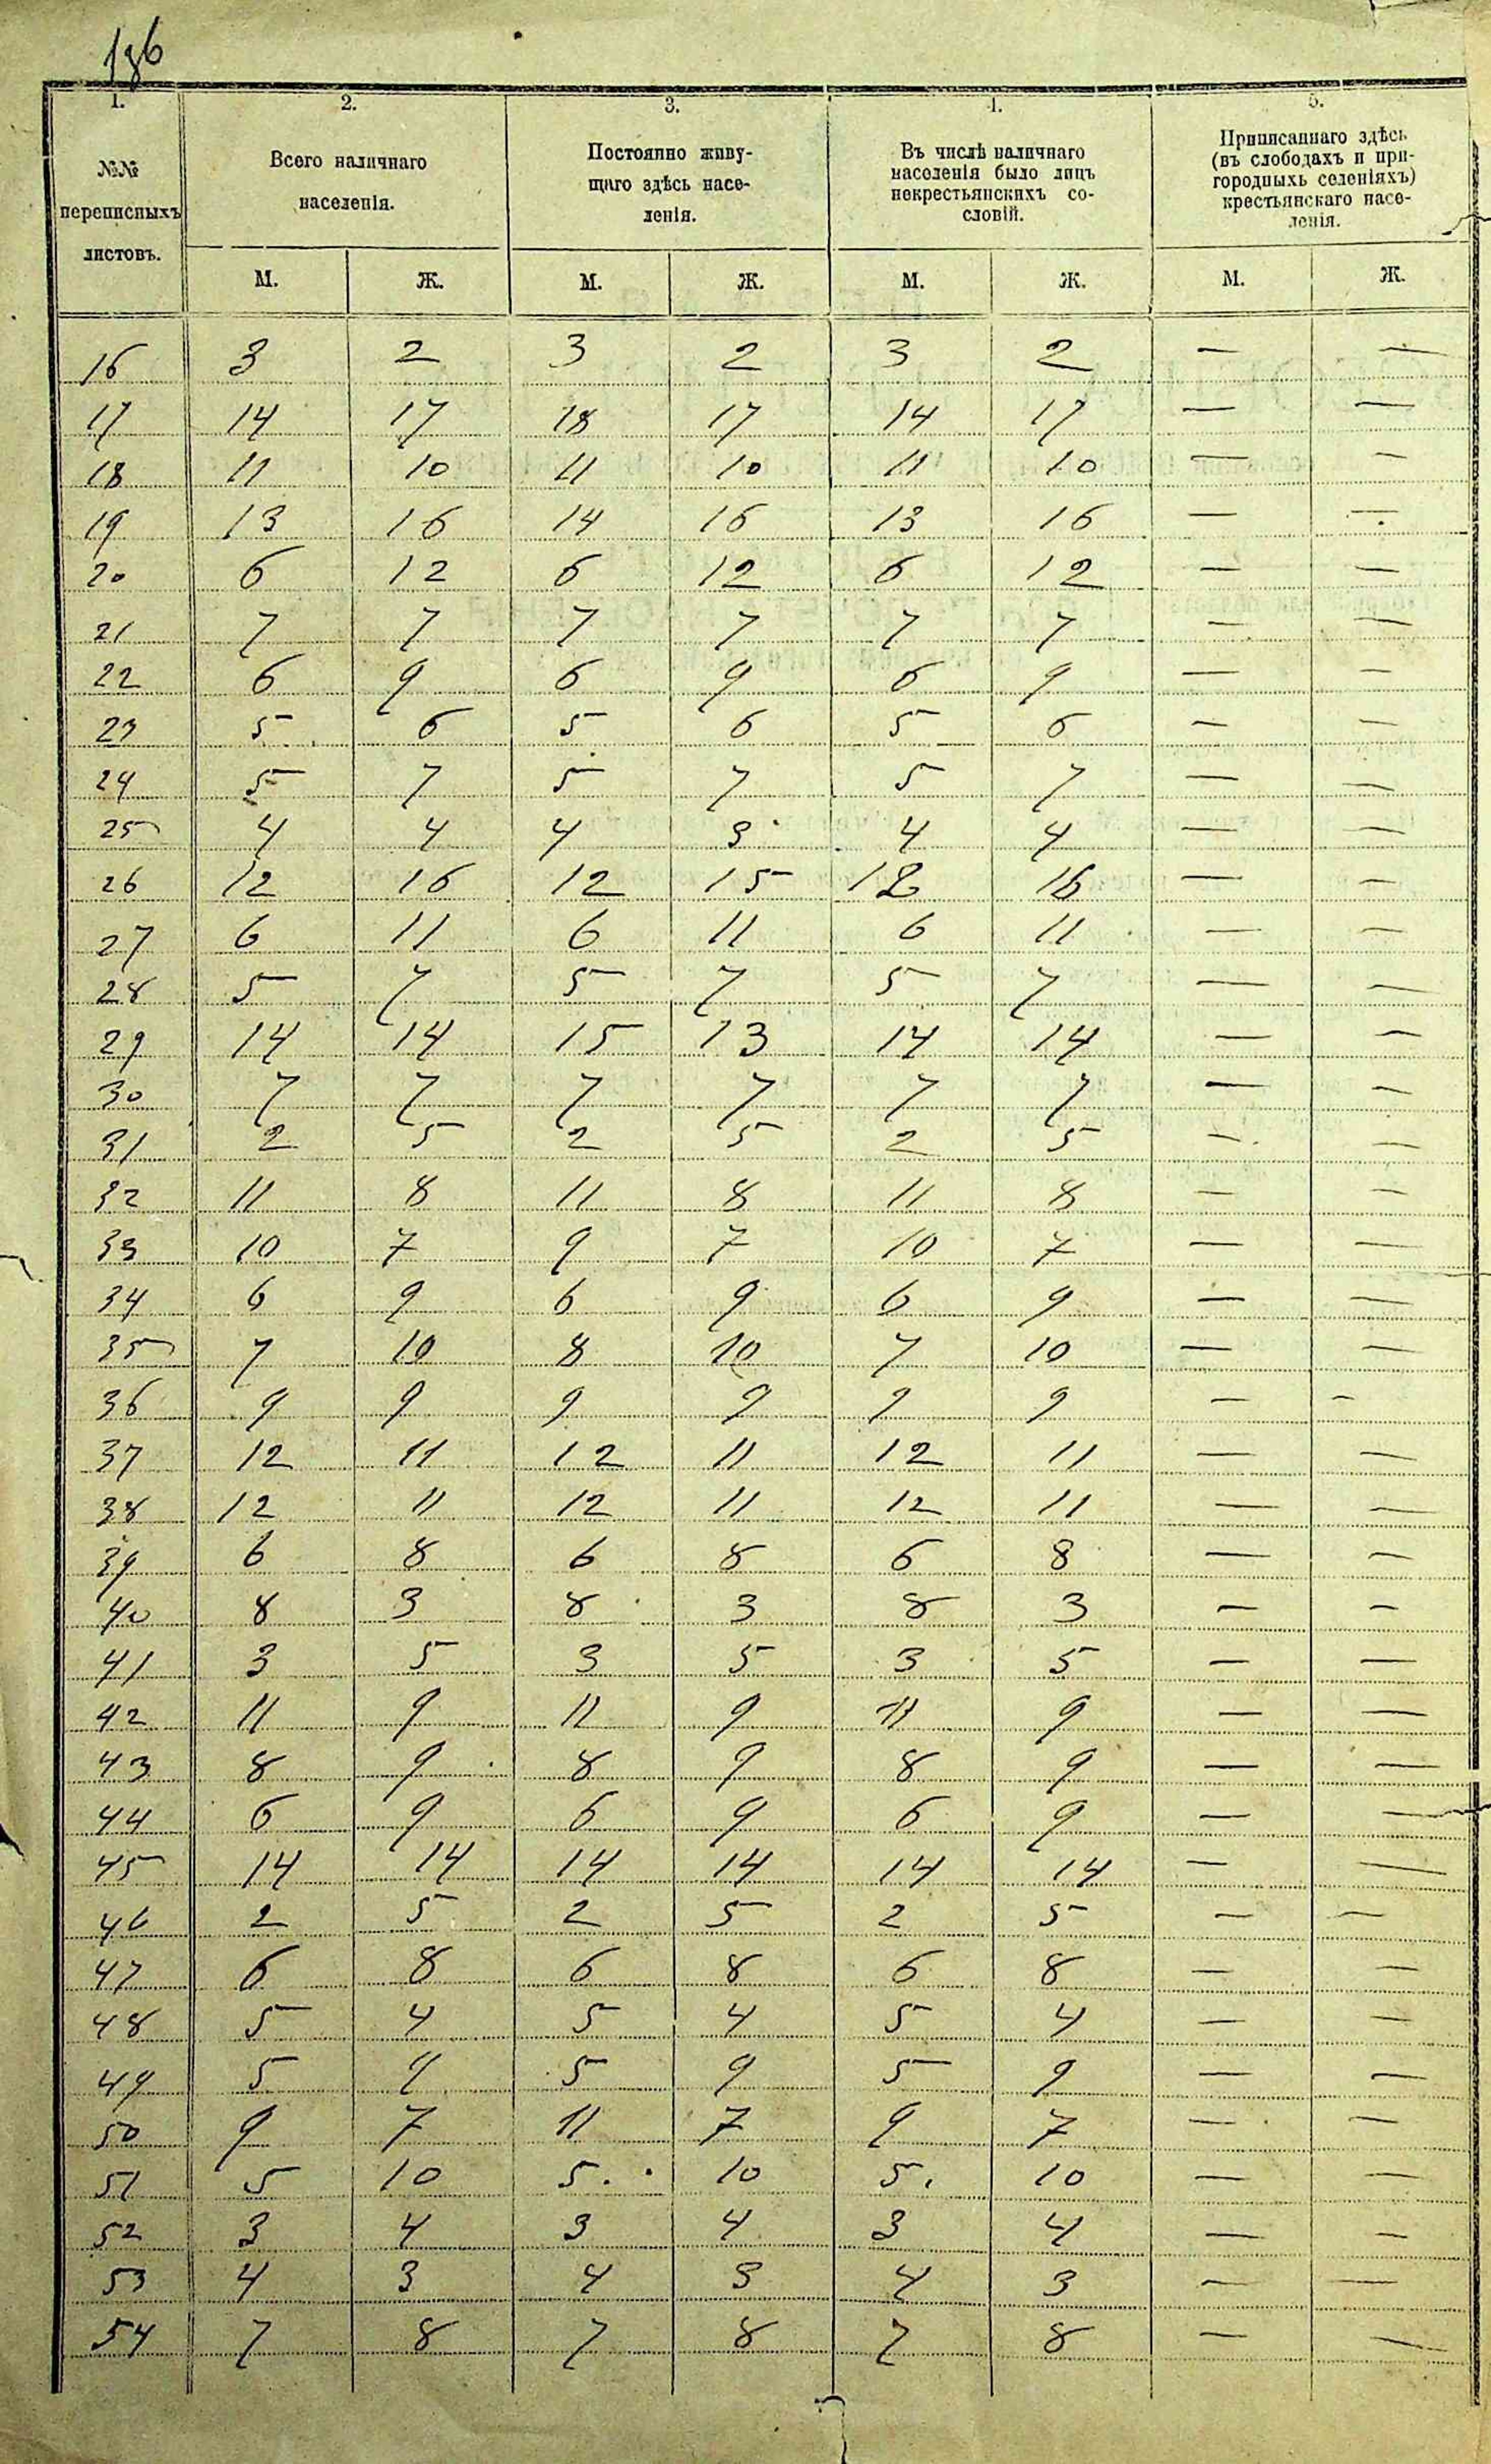 136
1. 2. 3. 4. 5.
№№ переписныхъ листовъ.
Всего наличнаго населенія.
Постоянно живу-
щаго здѣсь насе-
ленія.
Въ числѣ наличнаго
населенія было лицъ
некрестьянскихъ со-
словій.
Приписаннаго здѣсь
(въ слободахъ и при-
городныхъ селеніяхъ)
крестьянскаго насе-
ленія.
М. Ж. М. Ж. М. Ж. М. Ж.
16 3 2 3 2 3 2 — —
17 14 17 18 17 14 17 — —
18 11 10 11 10 11 10 — —
19 13 16 14 16 13 16 — —
20 6 12 6 12 6 12 — —
21 7 7 7 7 7 7 — —
22 6 9 6 9 6 9 — —
23 5 6 5 6 5 6 — —
24 5 7 5 7 5 7 — —
25 4 4 4 3 4 4 — —
26 12 16 12 15 12 16 — —
27 6 11 6 11 6 11 — —
28 5 7 5 7 5 7 — —
29 14 14 15 13 14 14 — —
30 7 7 7 7 7 7 — —
31 2 5 2 5 2 5 — —
32 11 8 11 8 11 8 — —
33 10 7 9 7 10 7 — —
34 6 9 6 9 6 9 — —
35 7 10 8 10 7 10 — —
36 9 9 9 9 9 9 — —
37 12 11 12 11 12 11 — —
38 12 11 12 11 12 11 — —
39 6 8 6 8 6 8 — —
40 8 3 8 3 8 3 — —
41 3 5 3 5 3 5 — —
42 11 9 11 9 11 9 — —
43 8 9 8 9 8 9 — —
44 6 9 6 9 6 9 — —
45 14 14 14 14 14 14 — —
46 2 5 2 5 2 5 — —
47 6 8 6 8 6 8 — —
48 5 4 5 4 5 4 — —
49 5 9 5 9 5 9 — —
50 9 7 11 7 9 7 — —
51 5 10 5 10 5 10 — —
52 3 4 3 4 3 4 — —
53 4 3 4 3 4 3 — —
54 7 8 7 8 7 8 — —